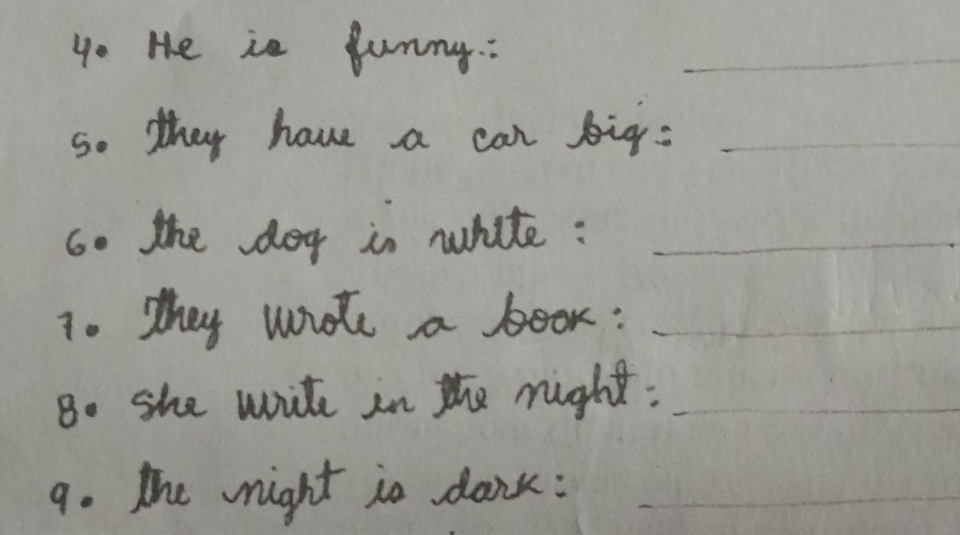 4. He is funny.: 
5. They have a car big: 
6. the dog is white : 
7. They wrote a book : 
8. She write in the night : 
9. the night is dark :